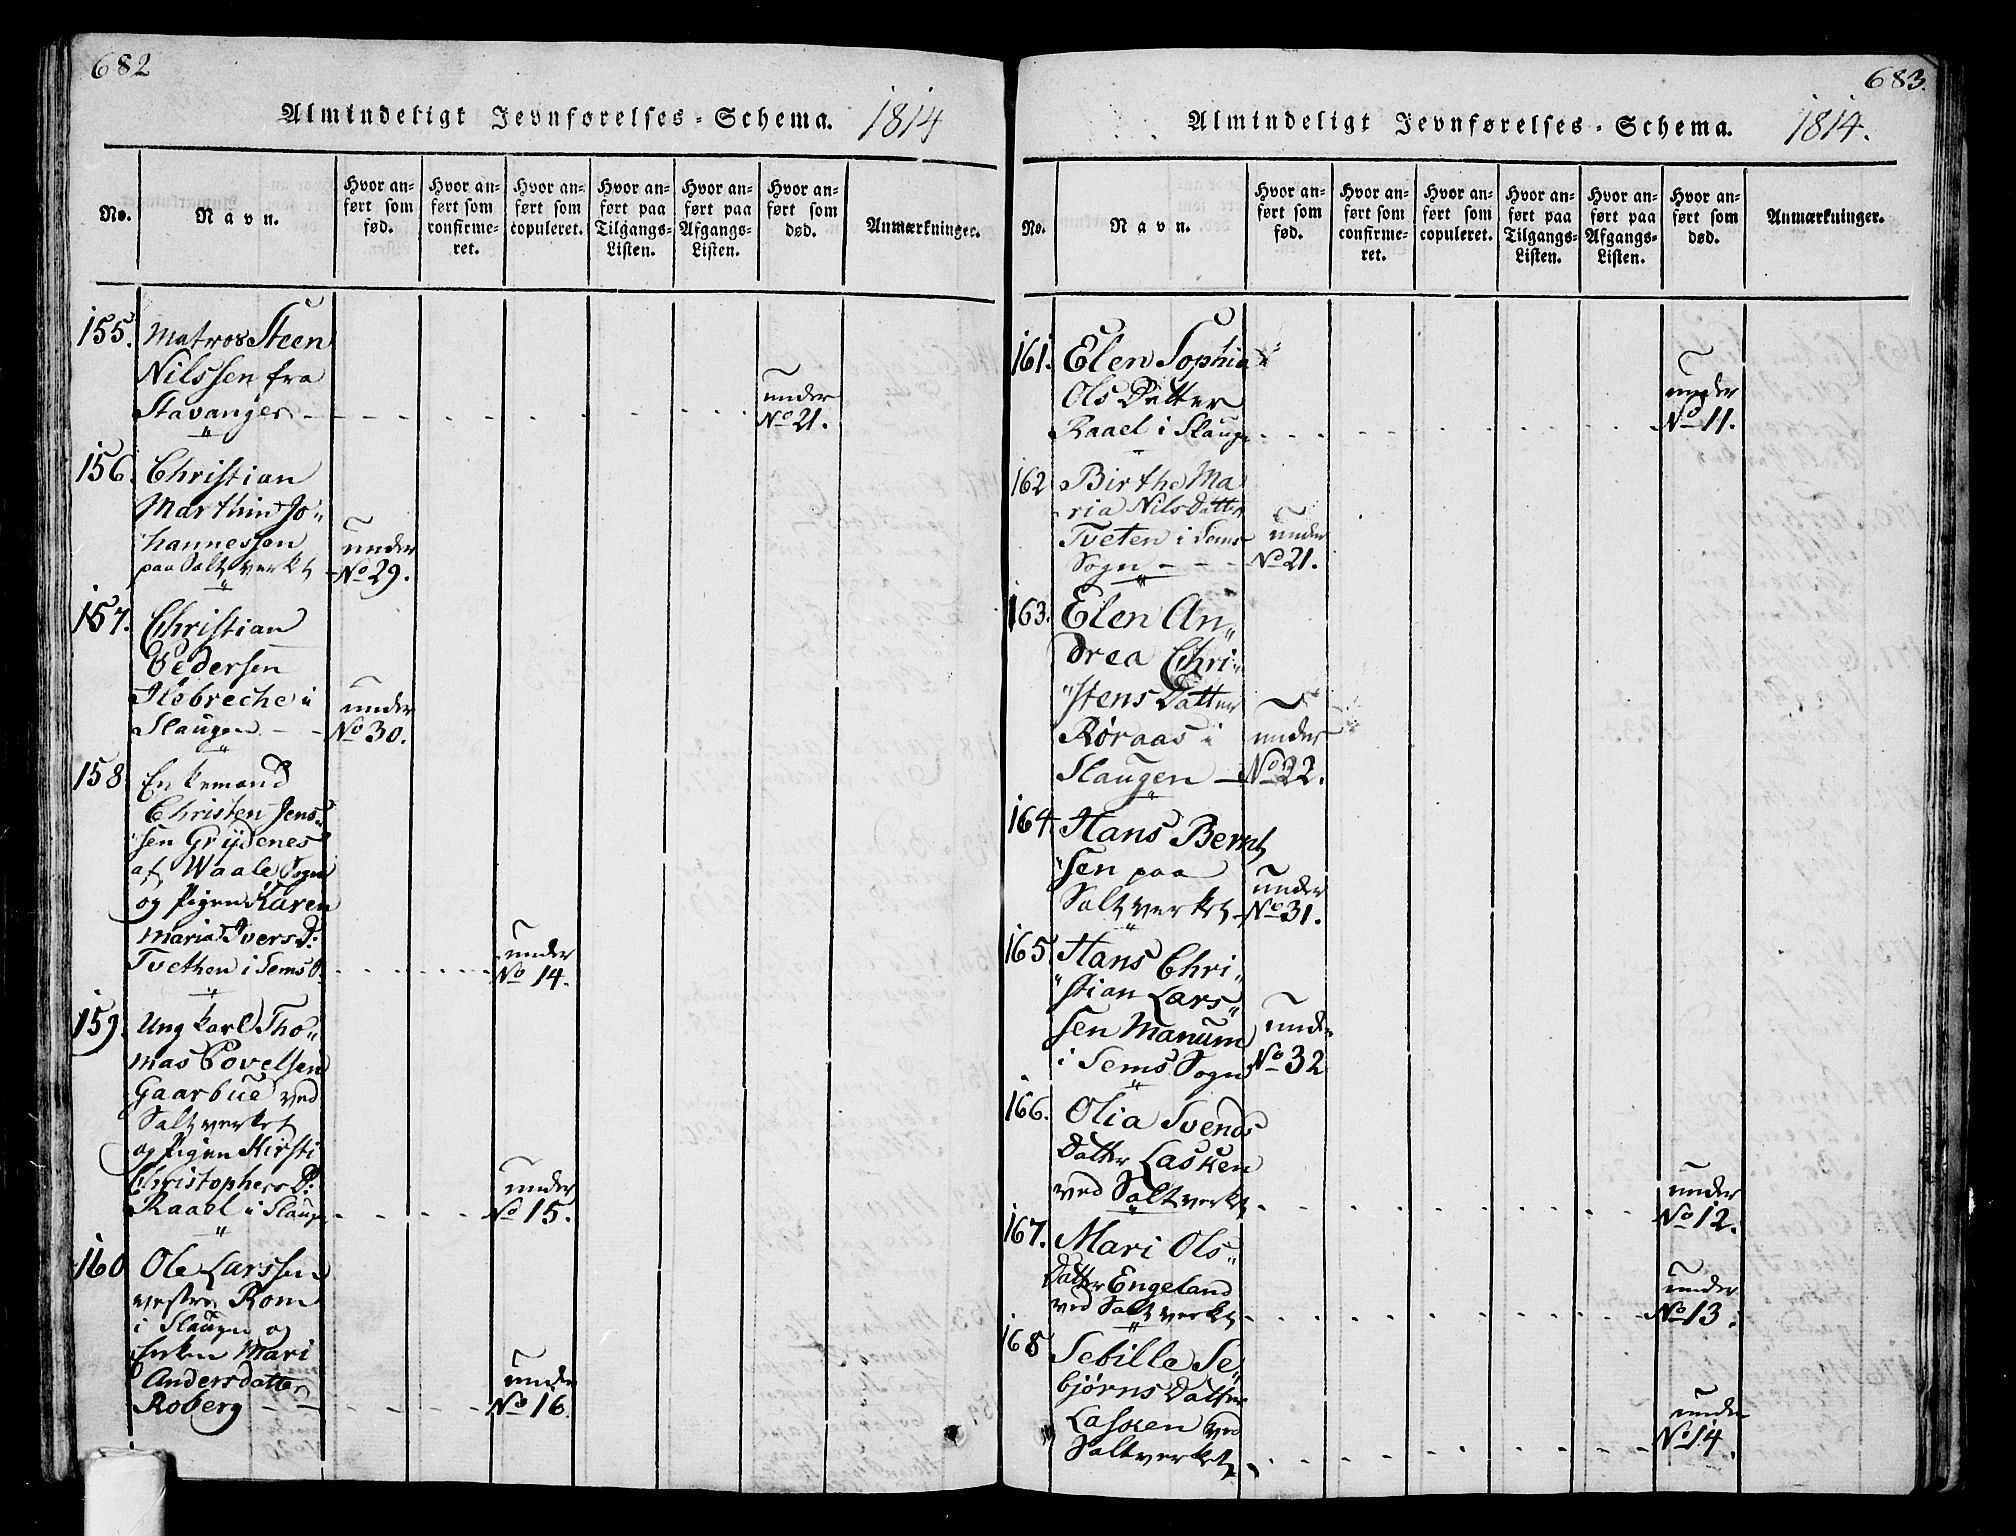 682
Almindeligt Jevnførelses-Schema. 1814
No.
Navn.
Hvor an-
ført som
fød.
Hvor an-
ført som
confirme-
ret.
Hvor an-
ført som
copuleret.
Hvor an-
ført paa
Tilgangs-
Listen.
Hvor an-
ført paa
Afgangs-
Listen.
Hvor an-
ført som
død.
Anmærkninger.
155. Matros Steen
Nilssen fra
Stavanger - - - - - - - under No 21.
156. Christian
Marthin Jo„
hannessen
paa Saltverket - under No 29.
157. Christian
Pedersen
Ilebreche i
Slaugen - - under No 30.
158 Enkemand
Christen Jens„
„sen Grydenes
af Waale Sogn
og Pigen Karen
Maria Ivers D:
Tvethen i Sems S. - - - - - under No 14.
159. Ungkarl Tho„
mas Povelsen
Gaarbue ved
Saltverket
og Pigen Kirsti
Christophers D:
Raael i Slaugn - - - - under No 15.
160 Ole Larssen
vestre Rom
i Slaugen og
Enken Mari
Andersdatter
Roberg - - - - - under No 16.
683.
Almindeligt Jevnførelses-Schema. 1814.
No.
Navn.
Hvor an-
ført som
fød.
Hvor an-
ført som
confirme-
ret.
Hvor an-
ført som
copuleret.
Hvor an-
ført paa
Tilgangs-
Listen.
Hvor an-
ført paa
Afgangs-
Listen.
Hvor an-
ført som
død.
Anmærkninger.
161. Elen Sophia
Ols Datter
Raael i Slaugn - - - - - - - under No 11.
162 Birthe Ma
ria Nils Datter
Tveten i Sems
Sogn - - - under No 21.
163. Elen An„
drea Chri„
„stens Datter
Røraas i
Slaugen - under No 22.
164. Hans Bernt
„sen paa
Saltverket - under No 31.
165 Hans Chri„
„stian Lars„
sen Manum
i Sems Sogn under No 32
166. Olia Svends
Datter Lasken
ved Saltverket - - - - - - under No 12.
167. Mari Ols„
Datter Engeland
ved Saltverket - - - - - - under No 13.
168 Sebille Se„
bjørns Datter
Lasken ved
Saltverket - - - - - - under No 14.